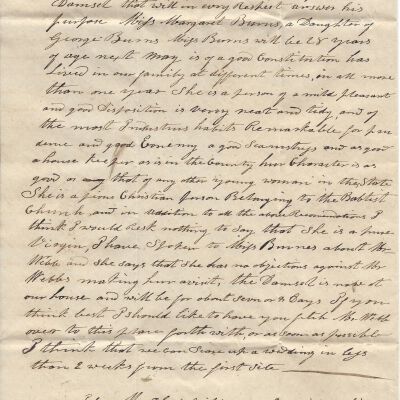 Damsel that will in evry Respect answer his
purpose Miss Margaret Burns, a Daughter of
George Burns Miss Burns will be 28 years
of age next May, is of a good Constitution has
Lived in our family at different times, in all more
than one year She is a person of a mild pleasant
and good Disposition is verry neat and tidy, and of
the most Industrus habits Remarkable for pru
dence and good Econemy a good Seamstress and as good
a house keeper as is in the County hur Character is as
good as any that of any other young woman in the State
She is a pious Christian person Belonging to the Baptist
Church, and in addition to all the above Recomendations I
think I would Resk nothing to Say that She is a pure
Virgin, I have Spoken to Miss Burnes about Mr
Webb and She says that She has no objections against Mr
Webbs making hur a visit, the Damsel is now at
our house and will be for about Seven or 8 Days If you
think best I Should like to have you fetch Mr Webb
over to this place forth with, or as soon as posible
I think that we can Scare up a wedding in less
than 2 weeks from the first Site